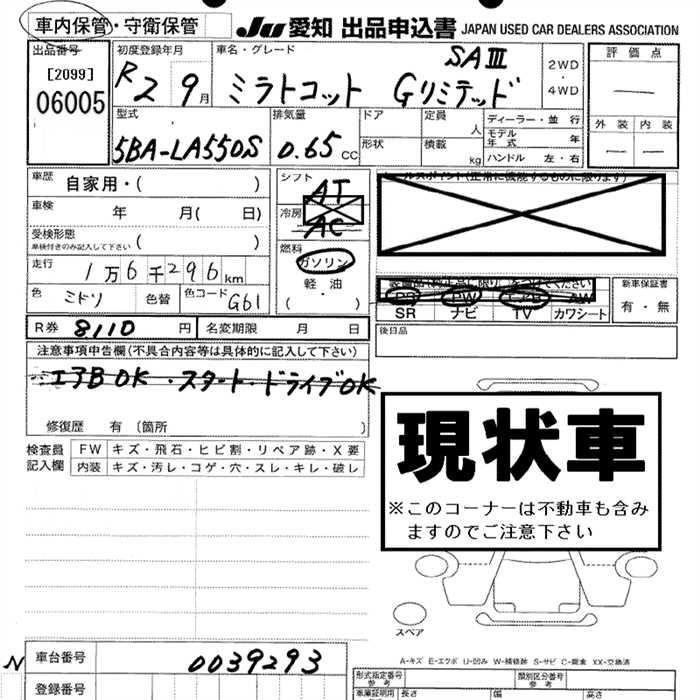 車内保管・守衛保管 JU 愛知 出品申込書 JAPAN USED CAR DEALERS ASSOCIATION
出品番号 初度登録年月 車名・グレード 評価点
[2099] R2 9月 ミラトコット Gリミテッド SAⅢ 2WD・4WD
06005
型式 排気量 ドア 定員 人 ディーラー・並行 外装 内装
5BA-LA550S 0.65 CC 形状 積載 kg モデル年式 年
ハンドル 左・右
車歴 自家用・( ) シフト AT
車検 年 月( 日) 冷房 AC
受検形態 車検付きのみ記入して下さい ( ) 燃料
走行 1万6千296km ガソリン
軽油
( ・ )
色 ミドリ 色替 色コード G61
PS PW エアB AW 新車保証書
SR ナビ TV カワシート 有・無
R券 8110 円 名変期限 月 日
後日品
注意事項申告欄(不具合内容等は具体的に記入して下さい)
エアB OK・スタート・ドライブOK
修復歴 有 〔箇所
現状車
※このコーナーは不動車も含みますのでご注意下さい
検査員記入欄 FW キズ・飛石・ヒビ割・リペア跡・X要
内装 キズ・汚レ・コゲ・穴・スレ・キレ・破レ
スペア
A-キズ E-エクボ U-凹み W-補修跡 S-サビ C-腐食 XX-交換済
N 車台番号 0039293
登録番号
型式指定番号 参考 類別区分番号 参考
車庫証明用 参考 長さ 幅 高さ